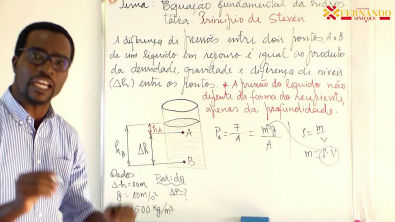 FERNANDO
SINFUEGE
Tema: Equação fundamental da hidros
tática. Princípio de Stevin
A diferença de pressões entre dois pontos A e B
de um líquido em repouso é igual ao produto
da densidade, gravidade e diferença de níveis
(Δh) entre os pontos. * A pressão do líquido não
difente da forma do recipiente,
apenas da profundidade.
hA
A
hB
Δh
B
A
m = ρ·V
Dados
Pedido
Δh = 10m
ΔP = ?
500 Kg/m³